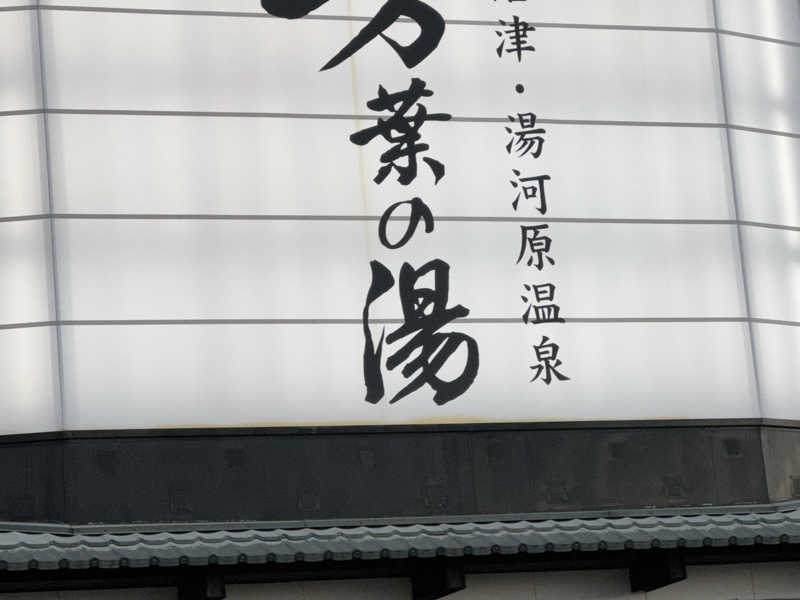 沼津・湯河原温泉
万葉の湯